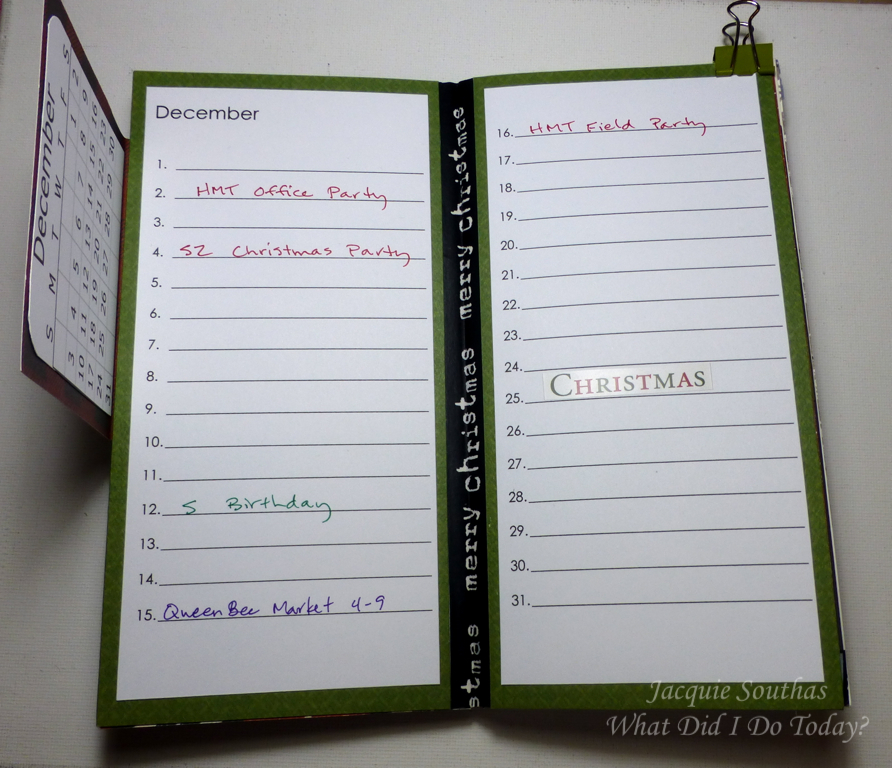 December
S M T W T F S
1 2
3 4 5 6 7 8 9
10 11 12 13 14 15 16
17 18 19 20 21 22 23
24 25 26 27 28 29 30
31
December
1.
2. HMT Office Party
3.
4. SZ Christmas Party
5.
6.
7.
8.
9.
10.
11.
12. S Birthday
13.
14.
15. QueenBee Market 4-9
stmas merry christmas merry christmas
16. HMT Field Party
17.
18.
19.
20.
21.
22.
23.
24.
25. CHRISTMAS
26.
27.
28.
29.
30.
31.
Jacquie Southas
What Did I Do Today?